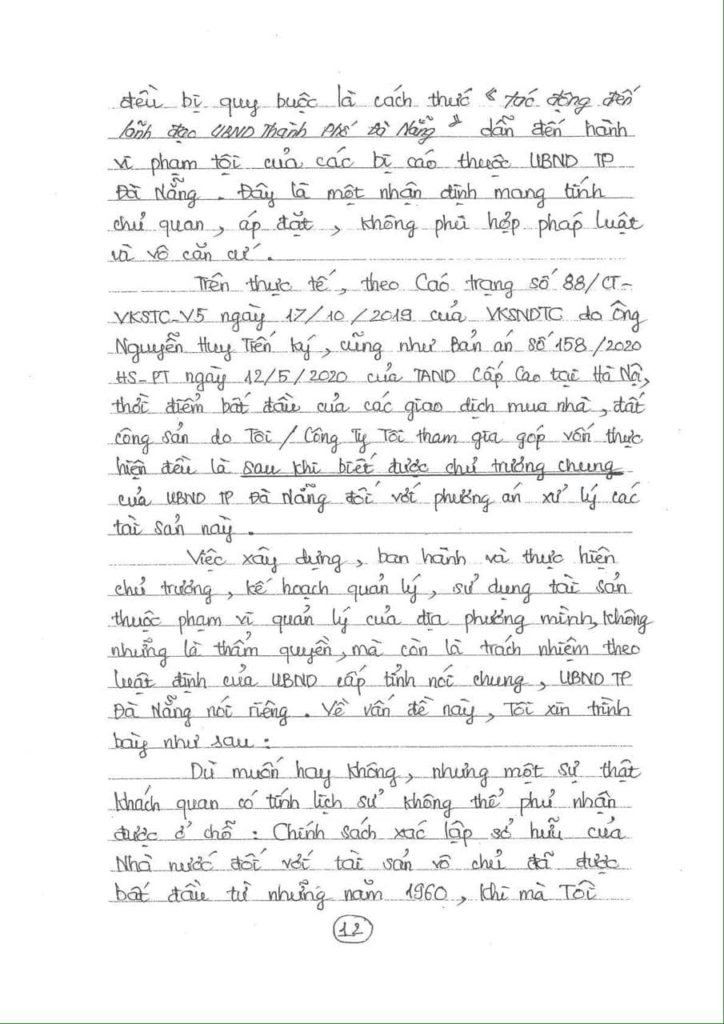 đều bị quy buộc là cách thức “tác động đến
lãnh đạo UBND Thành Phố Đà Nẵng” dẫn đến hành
vi phạm tội của các bị cáo thuộc UBND TP
Đà Nẵng. Đây là một nhận định mang tính
chủ quan, áp đặt, không phù hợp pháp luật
và vô căn cứ.
Trên thực tế, theo Cáo trạng số 88/CT-
VKSTC-V5 ngày 17/10/2019 của VKSNDTC do Ông
Nguyễn Huy Tiến ký, cũng như Bản án số 158/2020
HS-PT ngày 12/5/2020 của TAND Cấp Cao tại Hà Nội,
thời điểm bắt đầu của các giao dịch mua nhà, đất
công sản do Tôi/Công Ty Tôi tham gia góp vốn thực
hiện đều là sau khi biết được chủ trương chung
của UBND TP Đà Nẵng đối với phương án xử lý các
tài sản này.
Việc xây dựng, ban hành và thực hiện
chủ trương, kế hoạch quản lý, sử dụng tài sản
thuộc phạm vi quản lý của địa phương mình, không
những là thẩm quyền, mà còn là trách nhiệm theo
luật định của UBND cấp tỉnh nói chung, UBND TP
Đà Nẵng nói riêng. Về vấn đề này, Tôi xin trình
bày như sau:
Dù muốn hay không, nhưng một sự thật
khách quan có tính lịch sử không thể phủ nhận
được ở chỗ: Chính sách xác lập sở hữu của
Nhà nước đối với tài sản vô chủ đã được
bắt đầu từ những năm 1960, khi mà Tôi
12